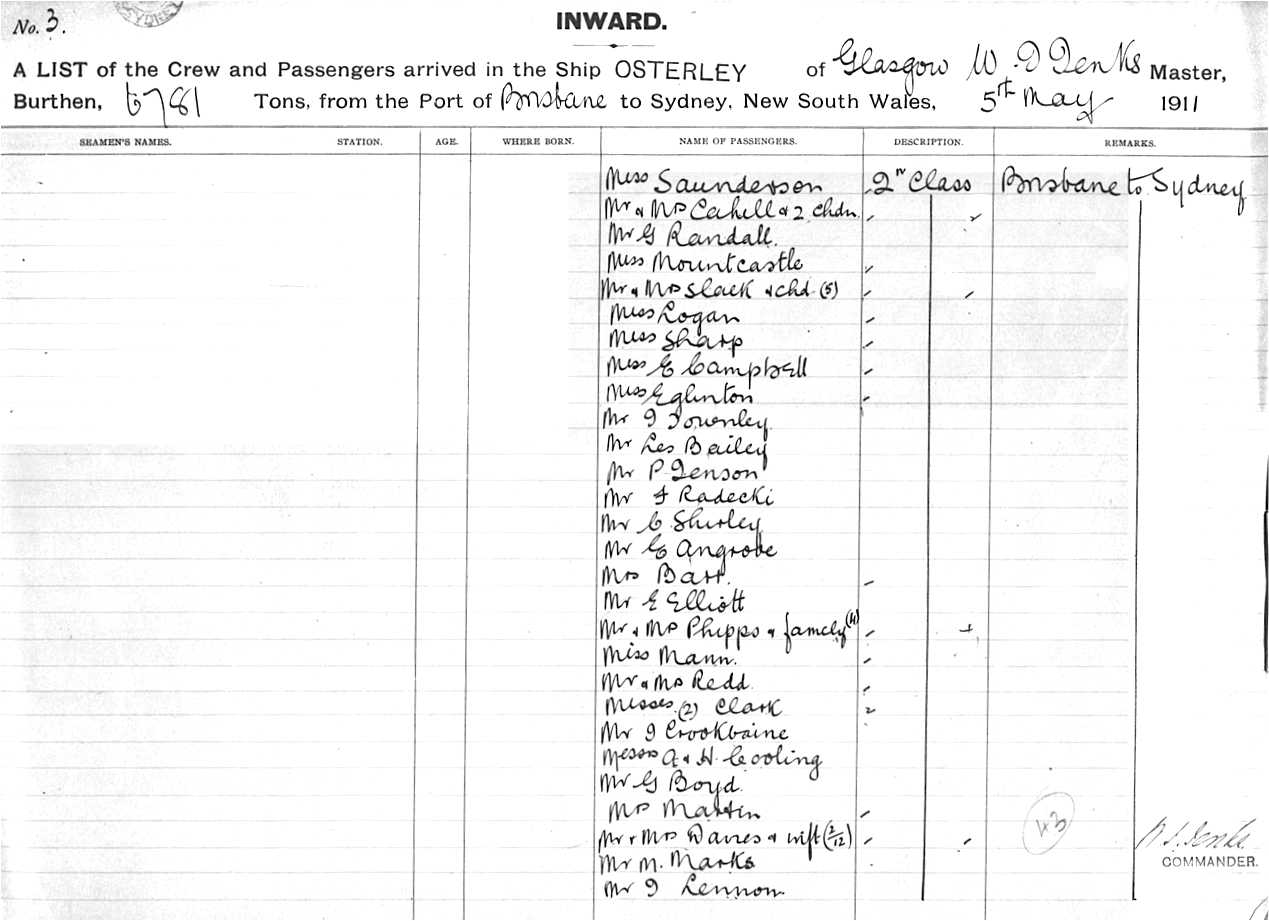 No. 3.
SYDNEY
INWARD.
A LIST of the Crew and Passengers arrived in the Ship OSTERLEY of Glasgow W. I Jenks Master,
Burthen, 6781 Tons, from the Port of Brisbane to Sydney, New South Wales, 5th May 1911
SEAMEN'S NAMES. STATION. AGE. WHERE BORN. NAME OF PASSENGERS. DESCRIPTION. REMARKS.
Miss Saunderson 2nd Class Brisbane to Sydney
Mr & Mrs Cahill & 2 chdn
Mr G Randall.
Miss Mountcastle
Mr & Mrs Slack & chd (5)
Miss Logan
Miss Sharp
Miss E Campbell
Miss Eglinton
Mr J Townley
Mr Les Bailey
Mr P Jenson
Mr F Radecki
Mr C Shirley
Mr E Angrove
Mrs Barr.
Mr E Elliott
Mr & Mrs Phipps & family (4)
Miss Mann.
Mr & Mrs Redd.
Misses (2) Clark
Mr J Crookbaine
Messrs A & H. Cooling
Mr G Boyd.
Mrs Martin
Mr & Mrs Davies & inft (2/12)
43
Mr M. Marks
COMMANDER.
Mr J Lennon.